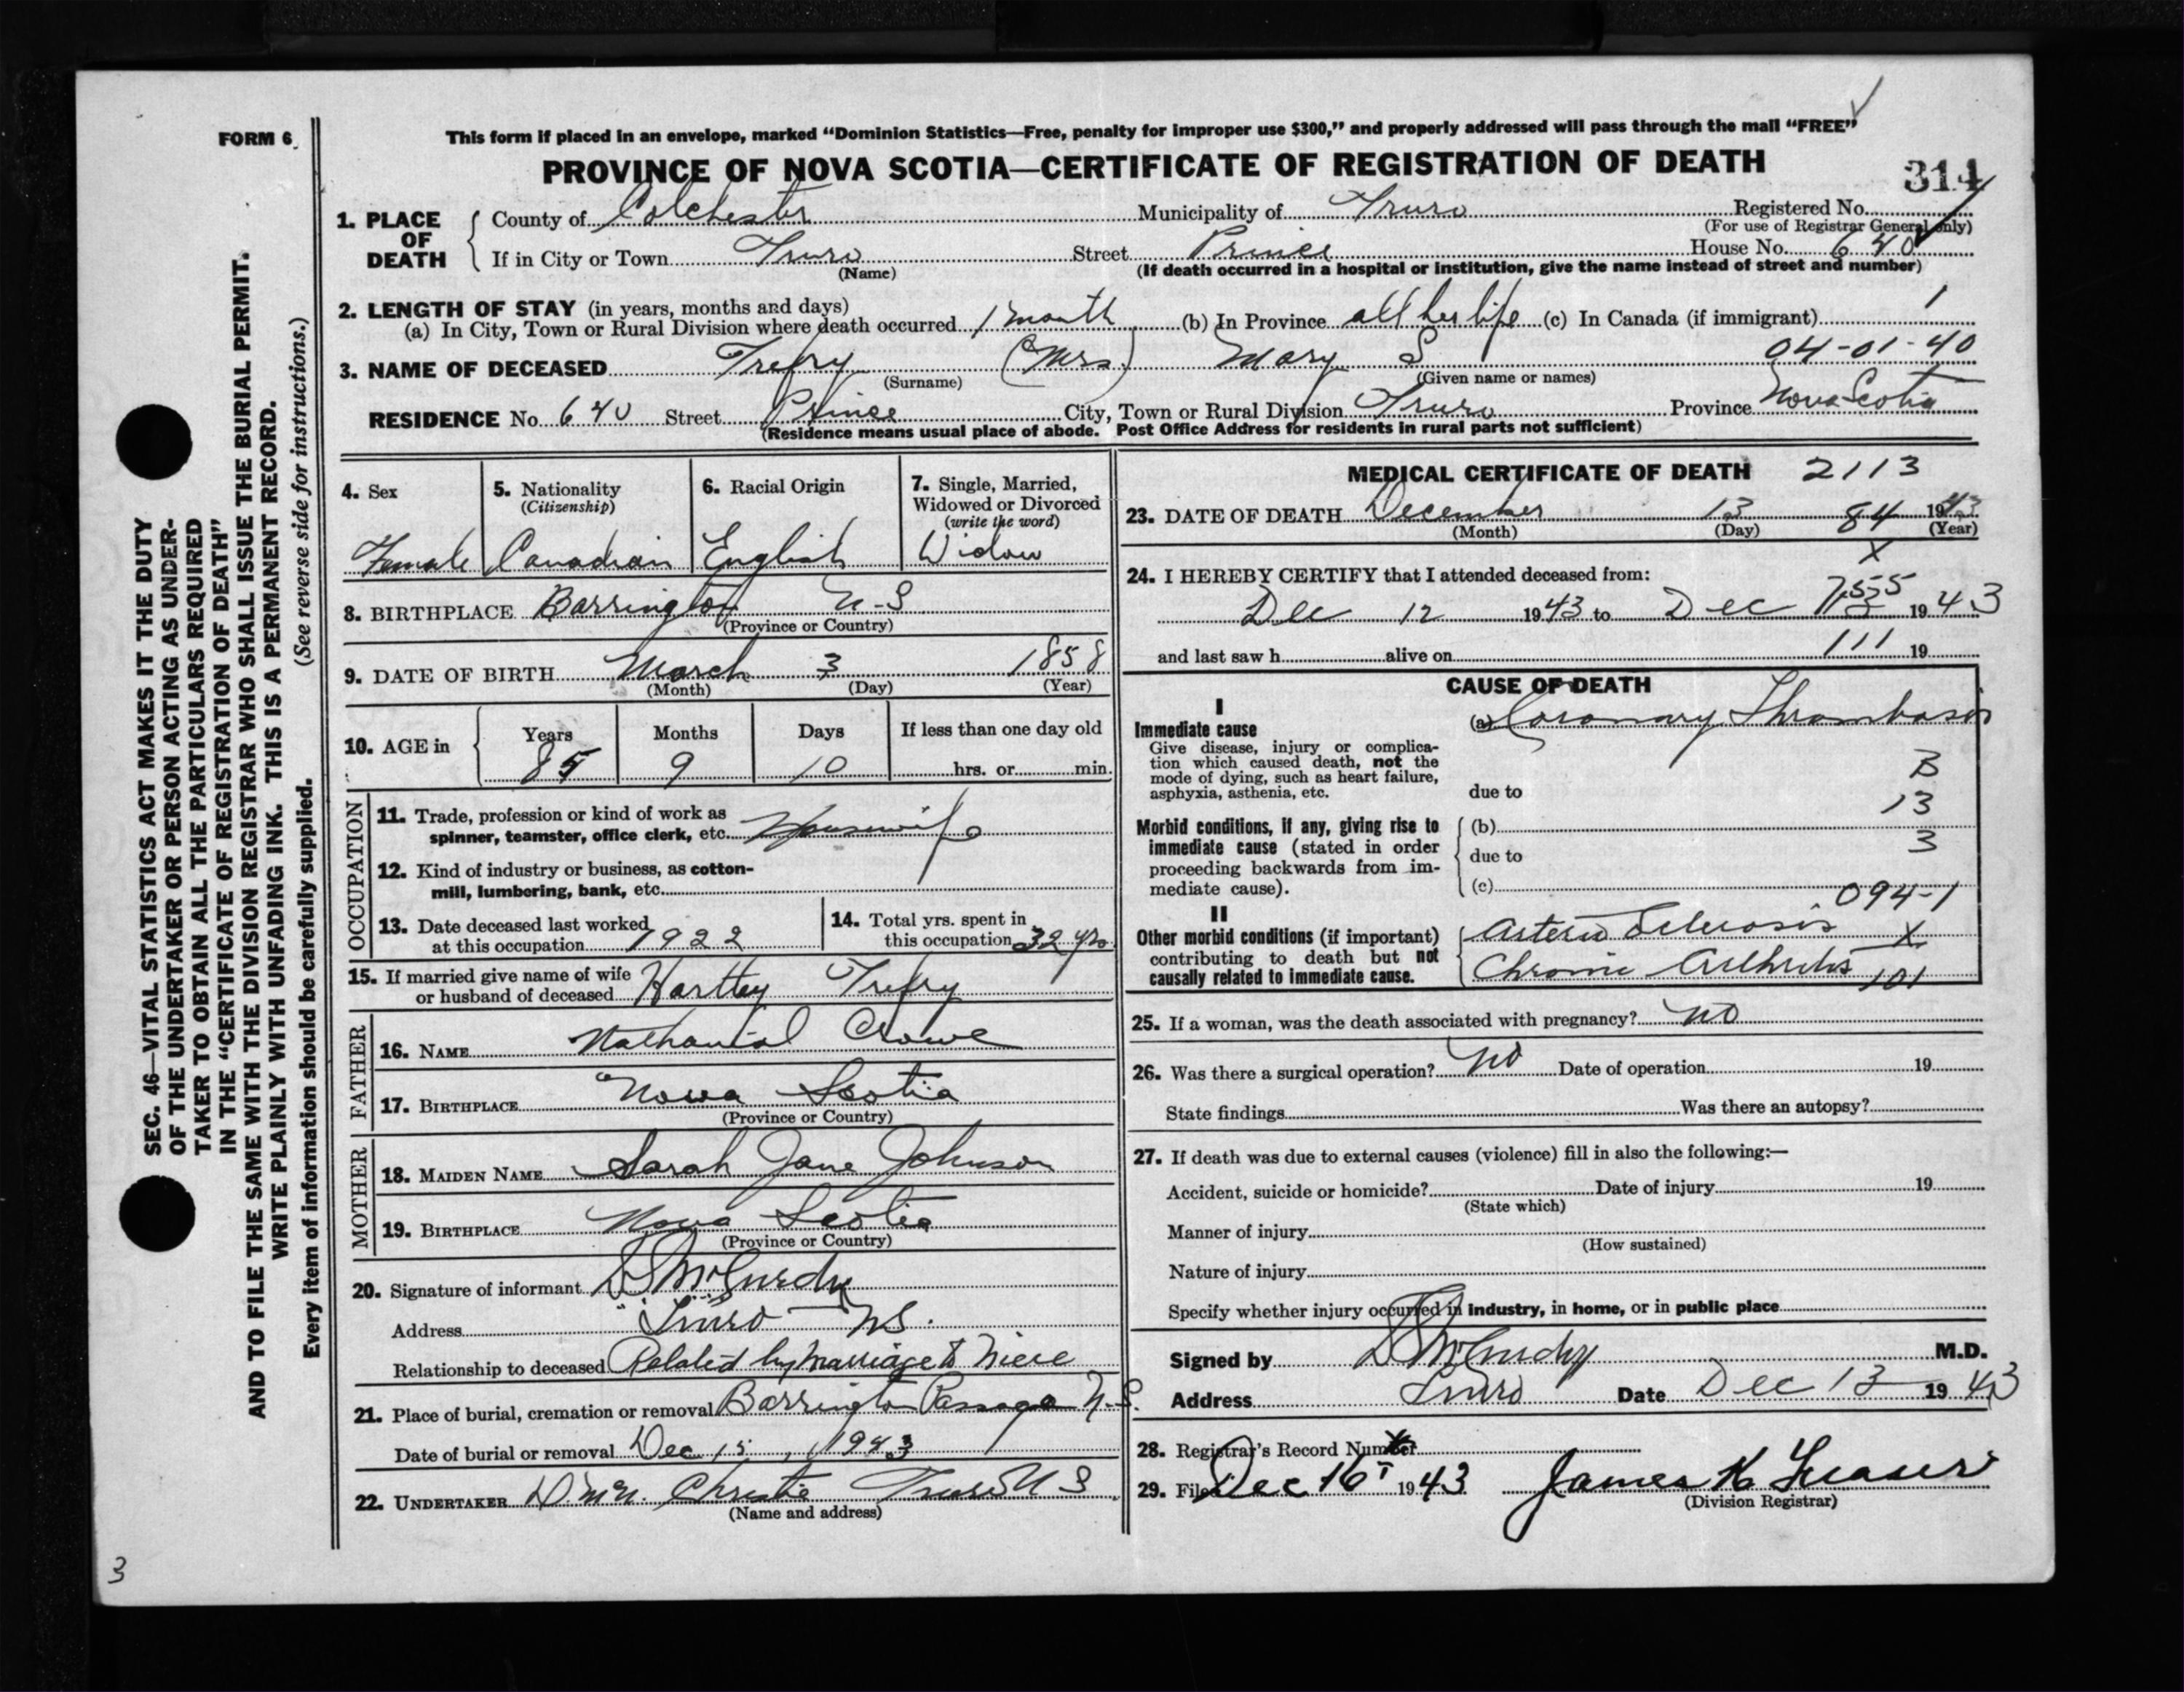 FORM 6
This form if placed in an envelope, marked “Dominion Statistics—Free, penalty for improper use $300,” and properly addressed will pass through the mail “FREE”
PROVINCE OF NOVA SCOTIA—CERTIFICATE OF REGISTRATION OF DEATH
314
SEC. 46—VITAL STATISTICS ACT MAKES IT THE DUTY
OF THE UNDERTAKER OR PERSON ACTING AS UNDER-
TAKER TO OBTAIN ALL THE PARTICULARS REQUIRED
IN THE “CERTIFICATE OF REGISTRATION OF DEATH”
AND TO FILE THE SAME WITH THE DIVISION REGISTRAR WHO SHALL ISSUE THE BURIAL PERMIT.
WRITE PLAINLY WITH UNFADING INK. THIS IS A PERMANENT RECORD.
Every item of information should be carefully supplied. (See reverse side for instructions.)
1. PLACE OF DEATH
County of Colchester Municipality of Truro Registered No.
(For use of Registrar General only)
If in City or Town Truro Street Prince House No. 640
(Name) (If death occurred in a hospital or institution, give the name instead of street and number)
2. LENGTH OF STAY (in years, months and days)
(a) In City, Town or Rural Division where death occurred 1 month (b) In Province all her life (c) In Canada (if immigrant) 1
3. NAME OF DECEASED Trefry (Mrs) Mary S 04-01-40
(Surname) (Given name or names)
RESIDENCE No. 640 Street Prince City, Town or Rural Division Truro Province Nova Scotia
(Residence means usual place of abode. Post Office Address for residents in rural parts not sufficient)
4. Sex Female
5. Nationality (Citizenship) Canadian
6. Racial Origin English
7. Single, Married, Widowed or Divorced (write the word) Widow
8. BIRTHPLACE Barrington N-S
(Province or Country)
9. DATE OF BIRTH March 3 1858
(Month) (Day) (Year)
10. AGE in Years 85 Months 9 Days 10 If less than one day old hrs. or min.
OCCUPATION
11. Trade, profession or kind of work as
spinner, teamster, office clerk, etc. Housewife
12. Kind of industry or business, as cotton-
mill, lumbering, bank, etc.
13. Date deceased last worked
at this occupation 1922
14. Total yrs. spent in
this occupation 32 yrs.
15. If married give name of wife
or husband of deceased Hartley Trefry
FATHER
16. NAME Nathanial Crowe
17. BIRTHPLACE Nova Scotia
(Province or Country)
MOTHER
18. MAIDEN NAME Sarah Jane Johnson
19. BIRTHPLACE Nova Scotia
(Province or Country)
20. Signature of informant McCurdy
Address Truro NS.
Relationship to deceased Related by marriage to Niece
21. Place of burial, cremation or removal Barrington Passage N.S.
Date of burial or removal Dec 15, 1943
22. UNDERTAKER Christie Truro N S
(Name and address)
MEDICAL CERTIFICATE OF DEATH 2113
23. DATE OF DEATH December 13 84 1943
(Month) (Day) (Year)
X
24. I HEREBY CERTIFY that I attended deceased from:
7555
Dec 12 1943 to Dec 1943
and last saw h alive on 111 19
CAUSE OF DEATH
I
Immediate cause
Give disease, injury or complica-
tion which caused death, not the
mode of dying, such as heart failure,
asphyxia, asthenia, etc.
(a) Coronary Thrombosis
B
due to
13
Morbid conditions, if any, giving rise to
immediate cause (stated in order
proceeding backwards from im-
mediate cause).
(b)
3
due to
(c)
094-1
II
Other morbid conditions (if important)
contributing to death but not
causally related to immediate cause.
Arterio Sclerosis X
Chronic Arthritis 101
25. If a woman, was the death associated with pregnancy? no
26. Was there a surgical operation? no Date of operation 19
State findings Was there an autopsy?
27. If death was due to external causes (violence) fill in also the following:—
Accident, suicide or homicide? Date of injury 19
(State which)
Manner of injury
(How sustained)
Nature of injury
Specify whether injury occurred in industry, in home, or in public place
Signed by McCurdy M.D.
Address Truro Date Dec 13 1943
28. Registrar's Record Number
29. Filed Dec 16 1943 James K Fraser
(Division Registrar)
3